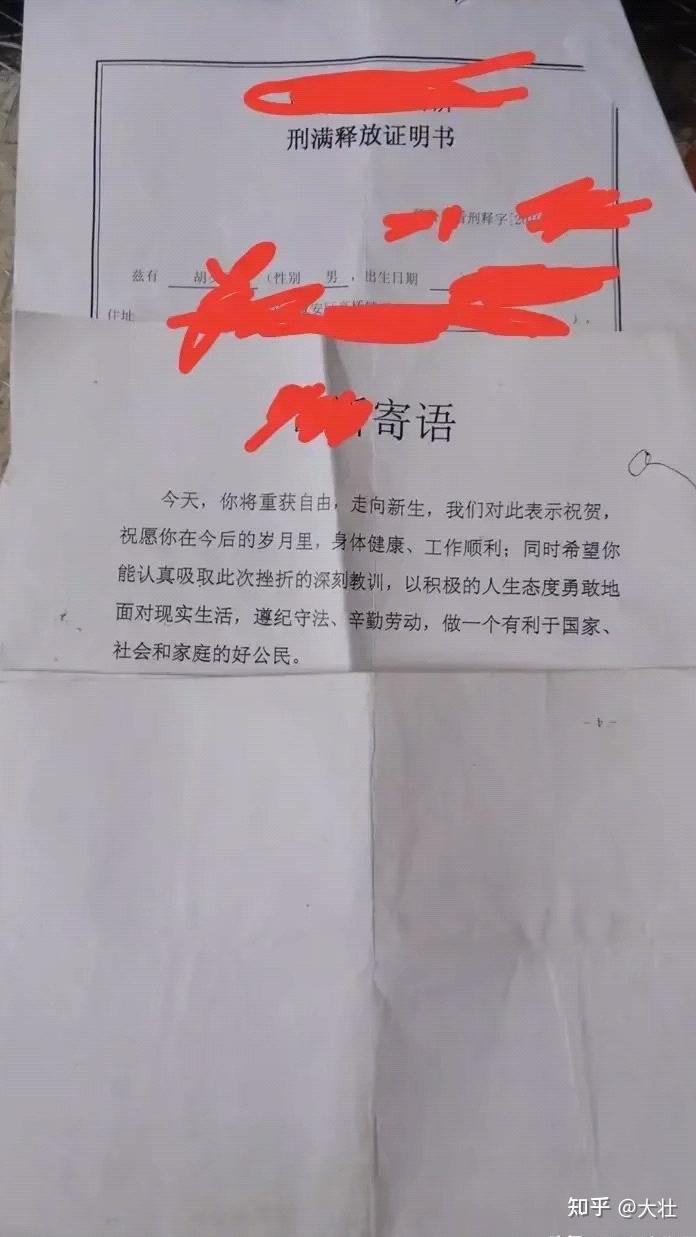 刑满释放证明书
刑释字[20
兹有 胡 （性别 男 ，出生日期
住址 ），
寄语
今天，你将重获自由，走向新生，我们对此表示祝贺，
祝愿你在今后的岁月里，身体健康、工作顺利；同时希望你
能认真吸取此次挫折的深刻教训，以积极的人生态度勇敢地
面对现实生活，遵纪守法、辛勤劳动，做一个有利于国家、
社会和家庭的好公民。
知乎 @大壮